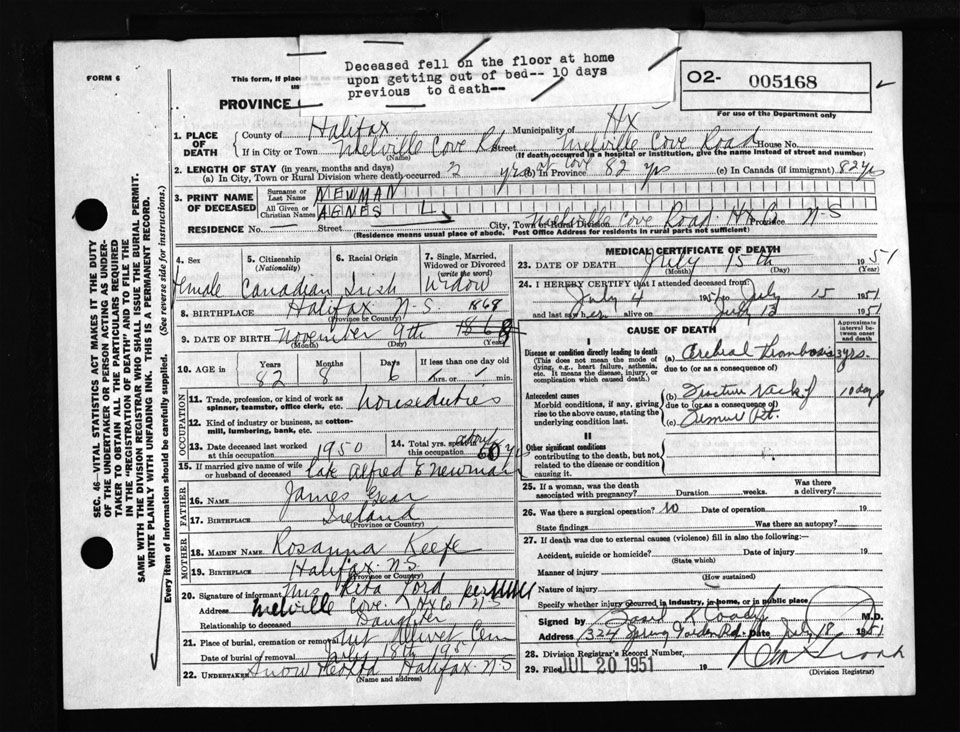 Deceased fell on the floor at home
upon getting out of bed-- 10 days
previous to death--
FORM 6
This form, if place
us
PROVINCE
O2- 005168
For use of the Department only
1. PLACE OF DEATH
County of Halifax Municipality of Hx
If in City or Town Melville Cove Rd Street Melville Cove Road House No.
(Name) (If death occurred in a hospital or institution, give the name instead of street and number)
2. LENGTH OF STAY (in years, months and days)
(a) In City, Town or Rural Division where death occurred 2 yrs (b) In Province 82 yrs (c) In Canada (if immigrant) 82 yrs
3. PRINT NAME OF DECEASED
Surname or Last Name NEWMAN
All Given or Christian Names AGNES L
RESIDENCE No. Street City, Town or Rural Division Melville Cove Road Hx Province N-S
(Residence means usual place of abode. Post Office Address for residents in rural parts not sufficient)
4. Sex
female
5. Citizenship (Nationality)
Canadian
6. Racial Origin
Irish
7. Single, Married, Widowed or Divorced (write the word)
Widow
8. BIRTHPLACE Halifax N-S
(Province or Country)
1868
9. DATE OF BIRTH November 9th 1868
(Month) (Day) (Year)
10. AGE in Years Months Days If less than one day old
82 8 6 hrs. or min.
OCCUPATION
11. Trade, profession, or kind of work as spinner, teamster, office clerk, etc. houseduties
12. Kind of industry or business, as cotton-mill, lumbering, bank, etc.
13. Date deceased last worked at this occupation 1950
14. Total yrs. spent in this occupation about 60 yrs
15. If married give name of wife or husband of deceased Late Alfred E Newman
FATHER
16. NAME James Gear
17. BIRTHPLACE Ireland
(Province or Country)
MOTHER
18. MAIDEN NAME Rosanna Keefe
19. BIRTHPLACE Halifax N.S
(Province or Country)
20. Signature of informant Mrs Rita Ford per
Address Melville Cove Hx Co N-S
Relationship to deceased Daughter
21. Place of burial, cremation or removal Mt Olivet Cem
Date of burial or removal July 18th 1951
22. UNDERTAKER Snow Halifax N-S
(Name and address)
MEDICAL CERTIFICATE OF DEATH
23. DATE OF DEATH July 15th 1951
(Month) (Day) (Year)
24. I HEREBY CERTIFY that I attended deceased from:
July 4 1951 to July 15 1951
and last saw her alive on July 13 1951
CAUSE OF DEATH
Approximate interval between onset and death
I
Disease or condition directly leading to death
(This does not mean the mode of dying, e.g., heart failure, asthenia, etc. It means the disease, injury, or complication which caused death.)
(a) Cerebral Thrombosis 3 yrs.
due to (or as a consequence of)
Antecedent causes
Morbid conditions, if any, giving rise to the above cause, stating the underlying condition last.
(b) Fracture Neck of 10 days
due to (or as a consequence of)
(c) Femur Rt.
II
Other significant conditions
contributing to the death, but not related to the disease or condition causing it.
25. If a woman, was the death associated with pregnancy? Duration weeks. Was there a delivery?
26. Was there a surgical operation? No Date of operation 19
State findings Was there an autopsy?
27. If death was due to external causes (violence) fill in also the following:
Accident, suicide or homicide? Date of injury 19
(State which)
Manner of injury
(How sustained)
Nature of injury
Specify whether injury occurred in industry, in home, or in public place
Signed by Coady M.D.
Address 324 Spring Garden Rd. Date July 18 1951
28. Division Registrar's Record Number
29. Filed JUL 20 1951 19
(Division Registrar)
SEC. 46—VITAL STATISTICS ACT MAKES IT THE DUTY
OF THE UNDERTAKER OR PERSON ACTING AS UNDER-
TAKER TO OBTAIN ALL THE PARTICULARS REQUIRED
IN THE "REGISTRATION OF DEATH" AND TO FILE THE
SAME WITH THE DIVISION REGISTRAR WHO SHALL ISSUE THE BURIAL PERMIT.
WRITE PLAINLY WITH UNFADING INK. THIS IS A PERMANENT RECORD.
Every item of information should be carefully supplied. (See reverse side for instructions.)